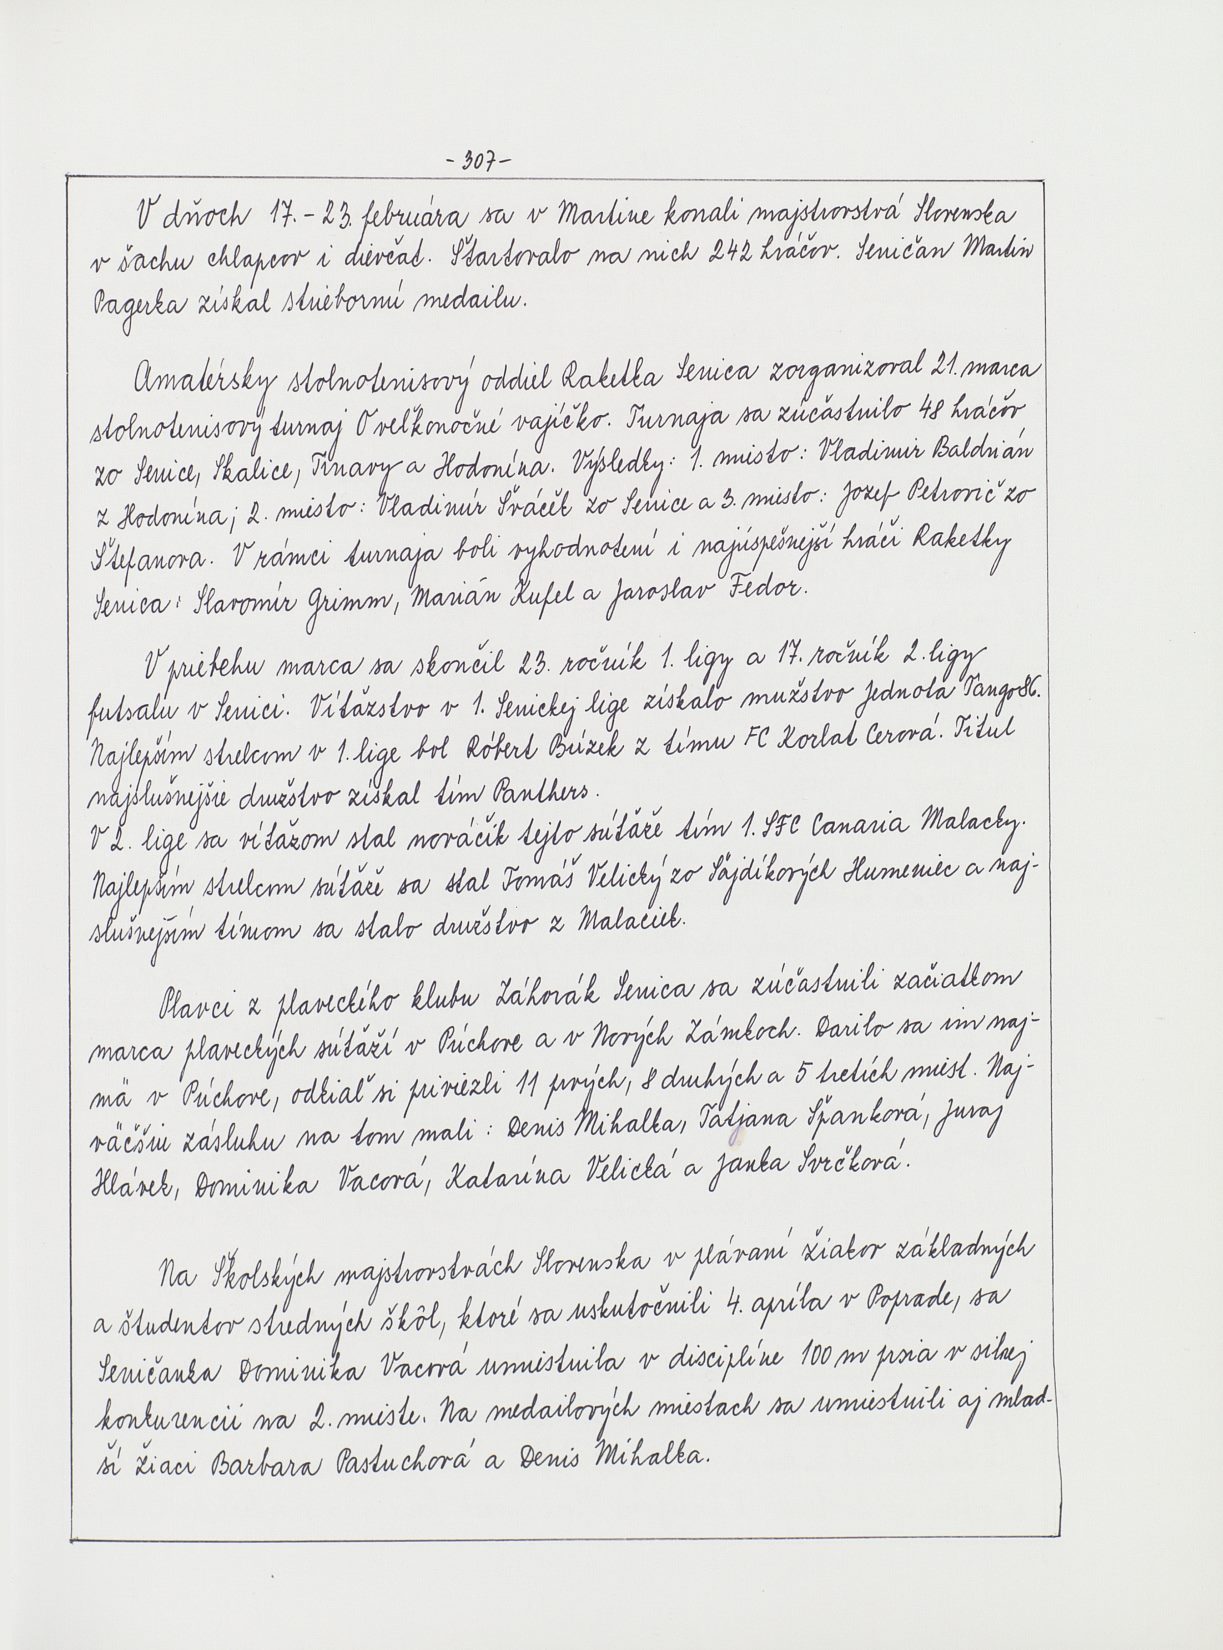 - 307 -
V dňoch 17. - 23. februára sa v Martine konali majstrovstvá Slovenska
v šachu chlapcov i dievčat. Štartovalo na nich 242 hráčov. Seničan Martin
Pagerka získal striebornú medailu.
Amatérsky stolnotenisový oddiel Raketka Senica zorganizoval 21. marca
stolnotenisový turnaj O veľkonočné vajíčko. Turnaja sa zúčastnilo 48 hráčov
zo Senice, Skalice, Trnavy a Hodonína. Výsledky: 1. miesto: Vladimír Baldrián
z Hodonína; 2. miesto: Vladimír Šváček zo Senice a 3. miesto: Jozef Petrovič zo
Štefanova. V rámci turnaja boli vyhodnotení i najúspešnejší hráči Raketky
Senica: Slavomír Grimm, Marián Kufel a Jaroslav Fedor.
V priebehu marca sa skončil 23. ročník 1. ligy a 17. ročník 2. ligy
futsalu v Senici. Víťazstvo v 1. Senickej lige získalo mužstvo Jednota Tango 86.
Najlepším strelcom v 1. lige bol Róbert Búzek z tímu FC Korlat Cerová. Titul
najslušnejšie družstvo získal tím Panthers.
V 2. lige sa víťazom stal nováčik tejto súťaže tím 1. SFC Canaria Malacky.
Najlepším strelcom súťaže sa stal Tomáš Velický zo Šajdíkových Humeniec a naj-
slušnejším tímom sa stalo družstvo z Malaciek.
Plavci z plaveckého klubu Záhorák Senica sa zúčastnili začiatkom
marca plaveckých súťaží v Púchove a v Nových Zámkoch. Darilo sa im naj-
mä v Púchove, odkiaľ si priviezli 11 prvých, 8 druhých a 5 tretích miest. Naj-
väčšiu zásluhu na tom mali: Denis Mihalka, Tatjana Španková, Juraj
Hlávek, Dominika Vacová, Katarína Velická a Janka Svrčková.
Na Školských majstrovstvách Slovenska v plávaní žiakov základných
a študentov stredných škôl, ktoré sa uskutočnili 4. apríla v Poprade, sa
Seničanka Dominika Vacová umiestnila v disciplíne 100 m prsia v silnej
konkurencii na 2. mieste. Na medailových miestach sa umiestnili aj mlad-
ší žiaci Barbara Pastuchová a Denis Mihalka.